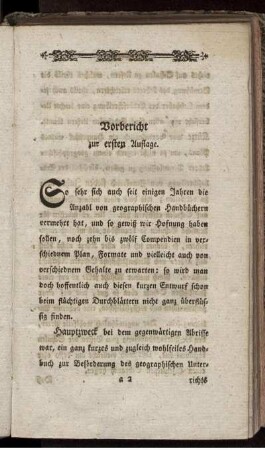 Vorbericht
zur ersten Auflage.
So sehr sich auch seit einigen Jahren die
Anzahl von geographischen Handbüchern
vermehrt hat, und so gewiß wir Hofnung haben
sollen, noch zehn bis zwölf Compendien in ver-
schiednem Plan, Formate und vielleicht auch von
verschiednem Gehalte zu erwarten; so wird man
doch hoffentlich auch diesen kurzen Entwurf schon
beim flüchtigen Durchblättern nicht ganz überflüs-
sig finden.
Hauptzweck bei dem gegenwärtigen Abrisse
war, ein ganz kurzes und zugleich wohlfeiles Hand-
buch zur Beförderung des geographischen Unter-
a 2 richts